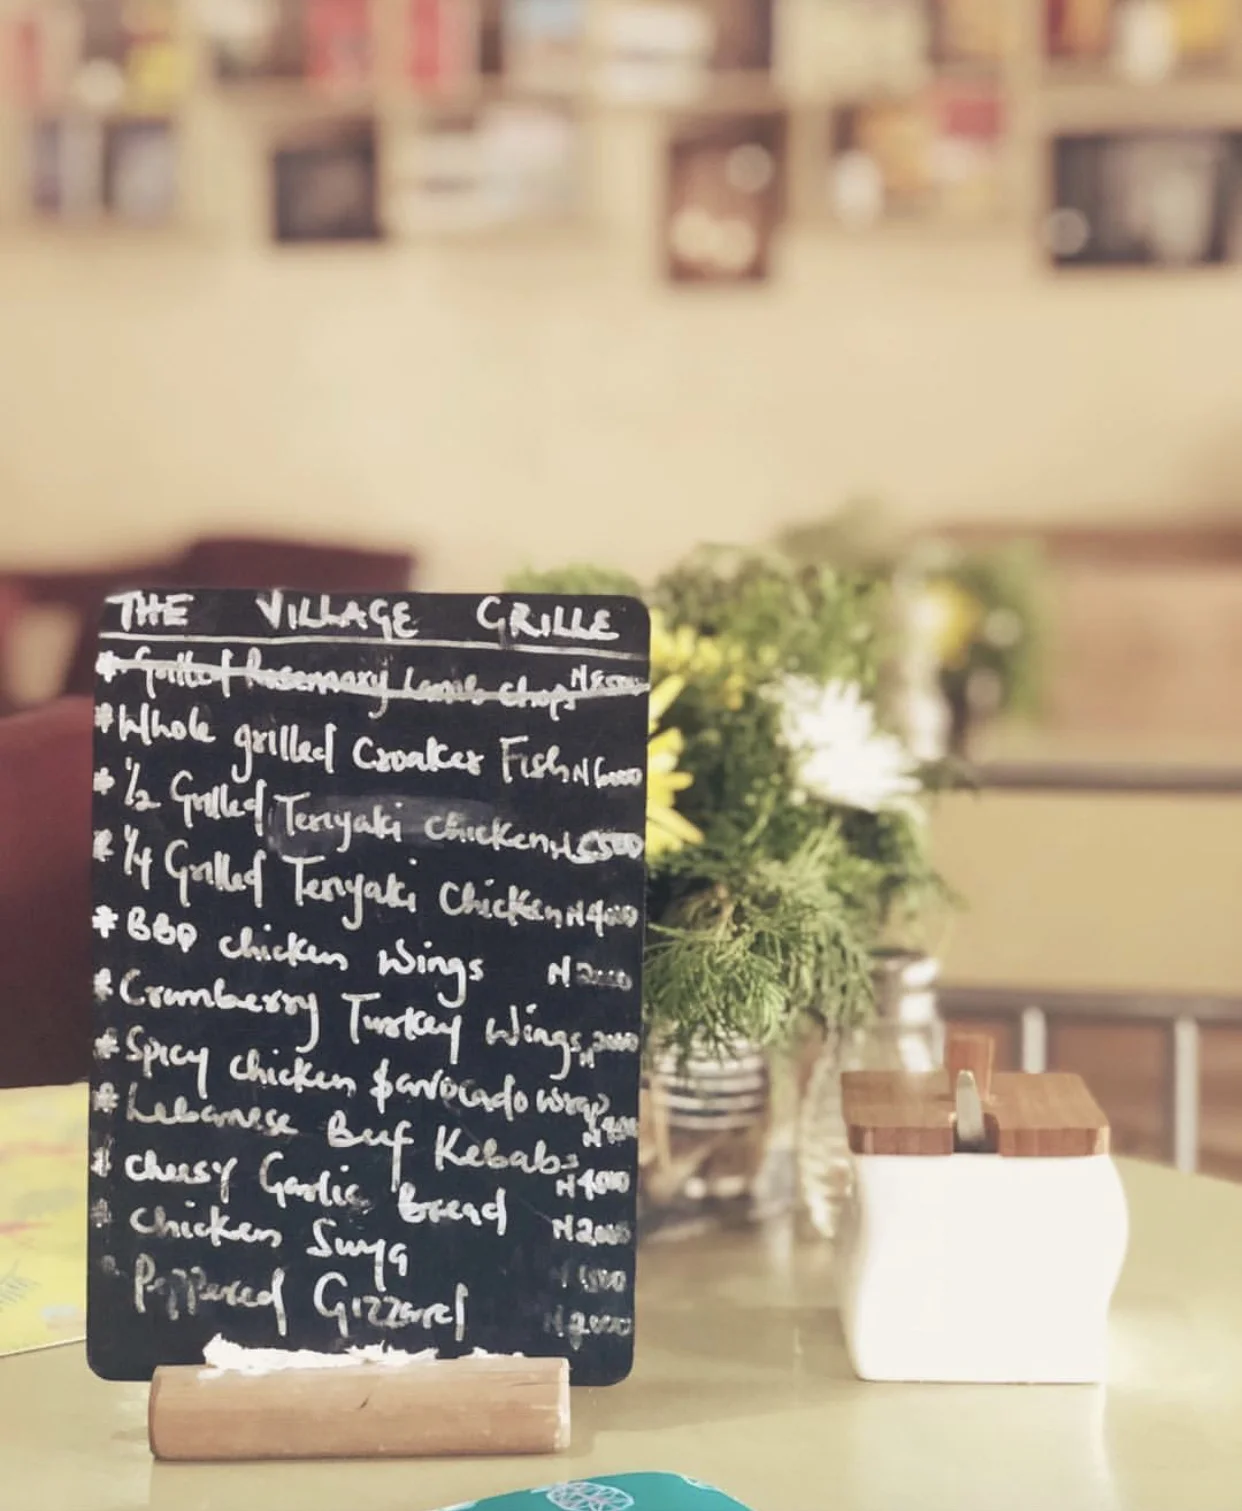 THE VILLAGE GRILLE
* Grilled Rosemary Lamb chops
* Whole grilled Croaker Fish N6000
* 1/2 Grilled Teriyaki chicken N5500
* 1/4 Grilled Teriyaki Chicken N4000
* BBQ chicken wings N2000
* Cramberry Turkey Wings N2000
* Spicy chicken & avocado wrap
* Lebanese Beef Kebabs N4000
* cheesy Garlic Bread N2000
* chicken Suya
* Peppered Gizzard N2000